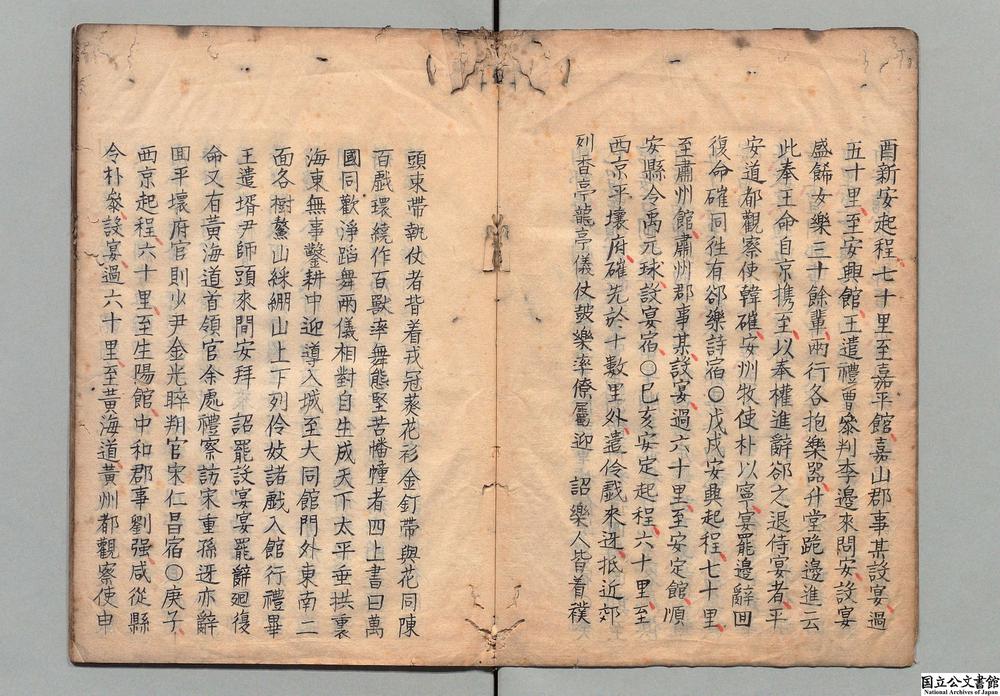 酉新安起程七十里至嘉平館嘉山郡事某設宴過
五十里至安興館王遣禮曹叅判李邊來問安設宴
盛餙女樂三十餘輩兩行各抱樂器升堂跪邊進云
此奉王命自京携至以奉權進辭卻之退侍宴者平
安道都觀察使韓確安州牧使朴以寧宴罷邊辭囬
復命確同徃有郤樂詩宿〇戊戌安興起程七十里
至肅州館肅州郡事某設宴過六十里至安定館順
安縣令禹元球設宴宿〇巳亥安定起程六十里至
西京平壤府確先於十數里外遣伶戲來迓抵近郊
列香亭龍亭儀仗皷樂率僚屬迎　詔樂人皆着襆
頭束帶執仗者皆着戎冠葵花衫金釘帶與花同陳
百戲環繞作百獸率舞態堅苦幡幢者四上書曰萬
國同歡淨蹈舞兩儀相對自生成天下太平垂拱裏
海東無事鑿耕中迎導入城至大同館門外東南二
面各樹鰲山綵綳山上下列伶妓諸戲入館行禮畢
王遣壻尹師頭來問安拜　詔罷設宴宴罷辭廻復
命又有黃海道首領官余處禮察訪宋重孫迓亦辭
囬平壤府官則少尹金光睟判官宋仁昌宿〇庚子
西京起程六十里至生陽館中和郡事劉强咸從縣
令朴叅設宴過六十里至黃海道黃州都觀察使申
国立公文書館
National Archives of Japan